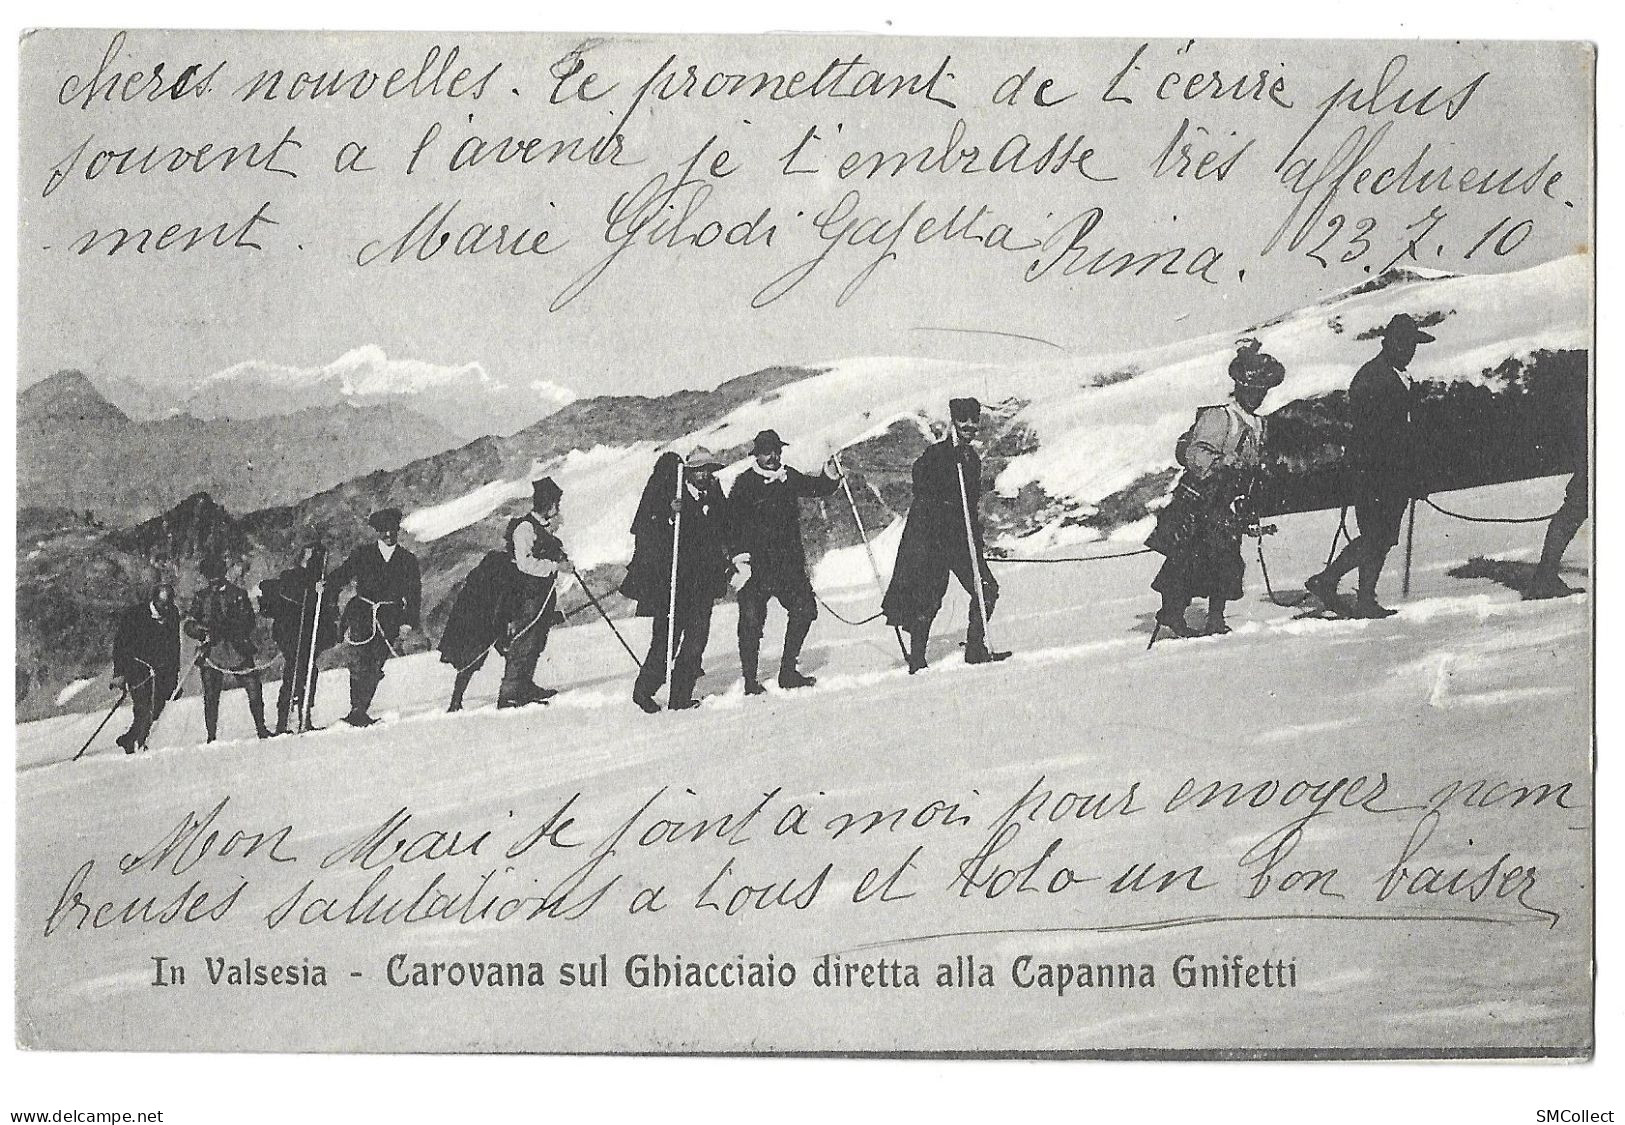 cheres nouvelles. Te promettant de t'ècrire plus
souvent a l'avenir je t'embrasse très affectueuse-
ment. Marie Gilodi Gafella Rima. 23.7.10
Mon Mari se joint à moi pour envoyer nom-
breuses salutations a tous et Toto un bon baiser
In Valsesia - Carovana sul Ghiacciaio diretta alla Capanna Gnifetti
www.delcampe.net
SMCollect